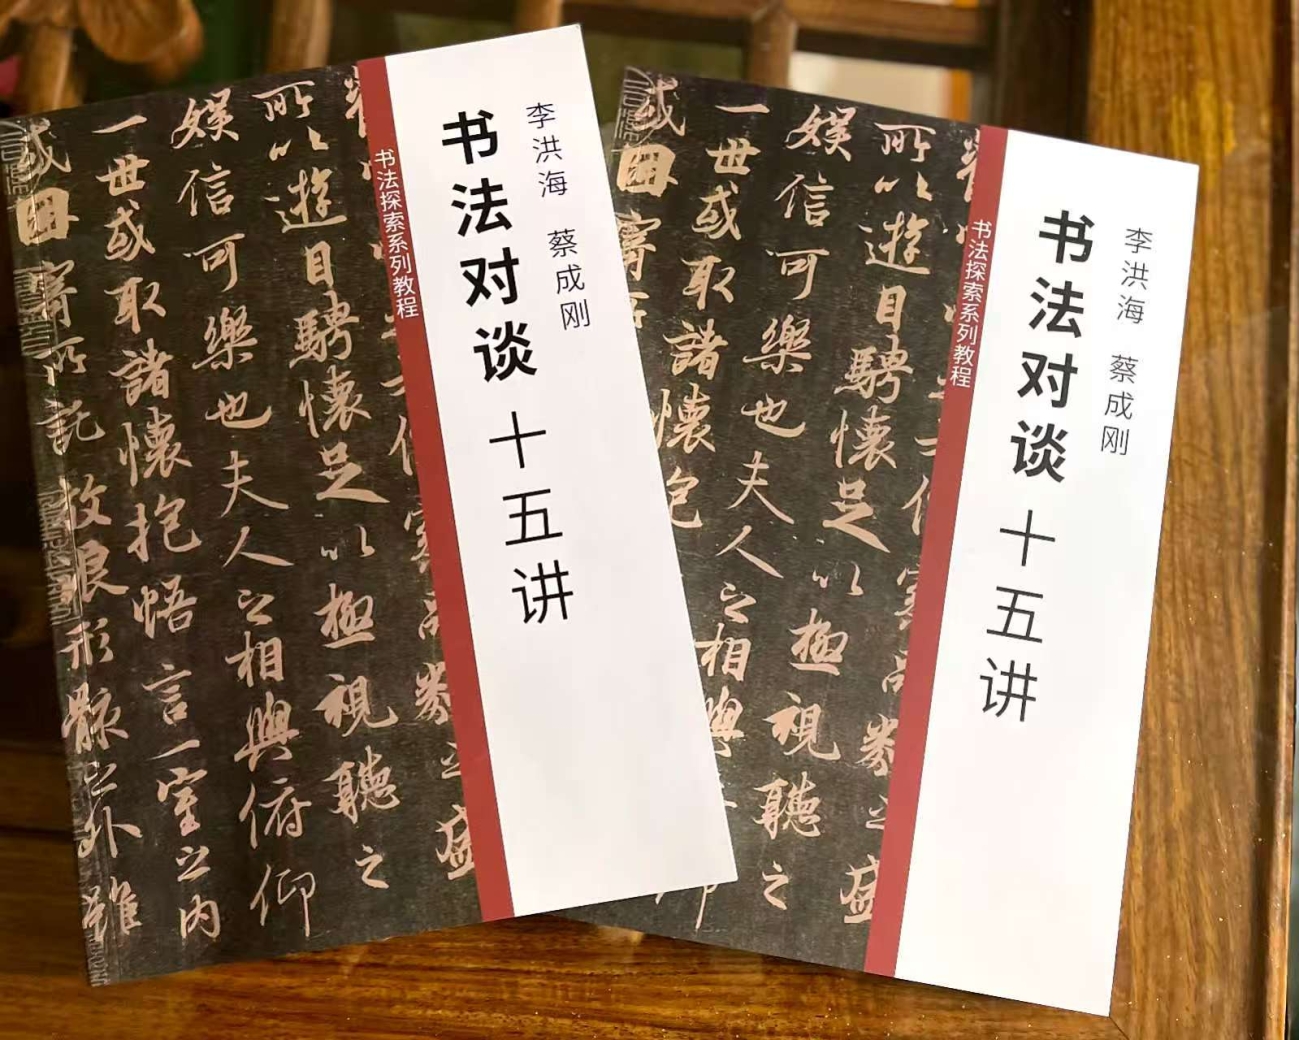 李洪海 蔡成刚
书法对谈十五讲
书法探索系列教程
所以遊目騁懷足以極視聽之
娱信可樂也夫人之相與俯仰
一世或取諸懷抱悟言一室之内
或因寄所託放浪形骸之外雖
李洪海 蔡成刚
书法对谈十五讲
书法探索系列教程
所以遊目騁懷足以極視聽之
娱信可樂也夫人之相
一世或取諸懷抱